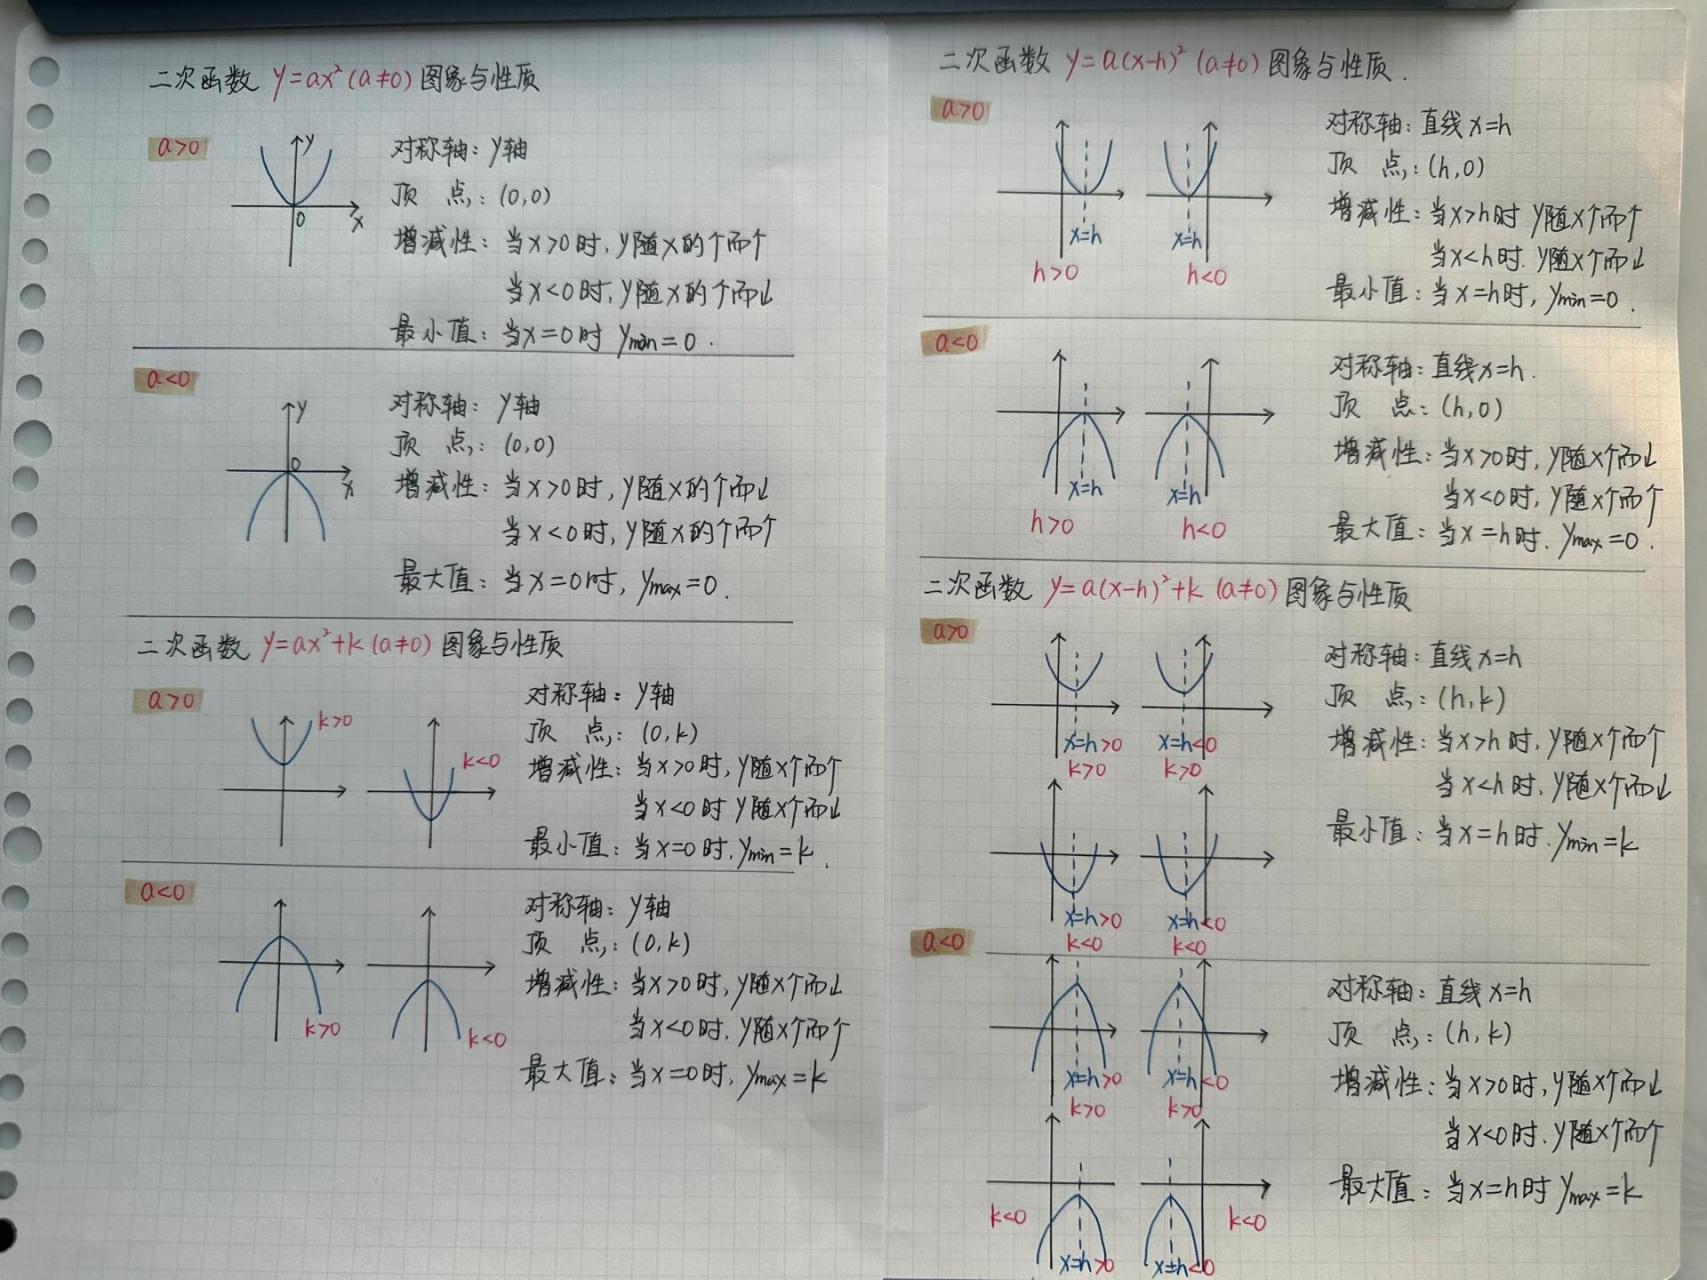 二次函数 y=ax²(a≠0)图象与性质
a>0
y
0
x
对称轴：y轴
顶 点：(0,0)
增减性：当x>0时，y随x的↑而↑
当x<0时，y随x的↑而↓
最小值：当x=0时 ymin=0．
a<0
y
0
x
对称轴：y轴
顶 点：(0,0)
增减性：当x>0时，y随x的↑而↓
当x<0时，y随x的↑而↑
最大值：当x=0时，ymax=0．
二次函数 y=ax²+k(a≠0)图象与性质
a>0
k>0
k<0
对称轴：y轴
顶 点：(0,k)
增减性：当x>0时，y随x↑而↑
当x<0时 y随x↑而↓
最小值：当x=0时．ymin=k．
a<0
k>0
k<0
对称轴：y轴
顶 点：(0,k)
增减性：当x>0时，y随x↑而↓
当x<0时．y随x↑而↑
最大值：当x=0时，ymax=k
二次函数 y=a(x-h)²(a≠0)图象与性质．
a>0
x=h
h>0
x=h
h<0
对称轴：直线x=h
顶 点：(h,0)
增减性：当x>h时 y随x↑而↑
当x<h时．y随x↑而↓
最小值：当x=h时，ymin=0．
a<0
x=h
h>0
x=h
h<0
对称轴：直线x=h．
顶 点：(h,0)
增减性：当x>0时，y随x↑而↓
当x<0时，y随x↑而↑
最大值：当x=h时．ymax=0．
二次函数 y=a(x-h)²+k(a≠0)图象与性质
a>0
x=h>0
k>0
x=h<0
k>0
x=h>0
k<0
x=h<0
k<0
对称轴：直线x=h
顶 点：(h,k)
增减性：当x>h时，y随x↑而↑
当x<h时，y随x↑而↓
最小值：当x=h时．ymin=k
a<0
x=h>0
k>0
x=h<0
k>0
k<0
x=h>0
k<0
x=h<0
对称轴：直线x=h
顶 点：(h,k)
增减性：当x>0时，y随x↑而↓
当x<0时．y随x↑而↑
最大值：当x=h时 ymax=k